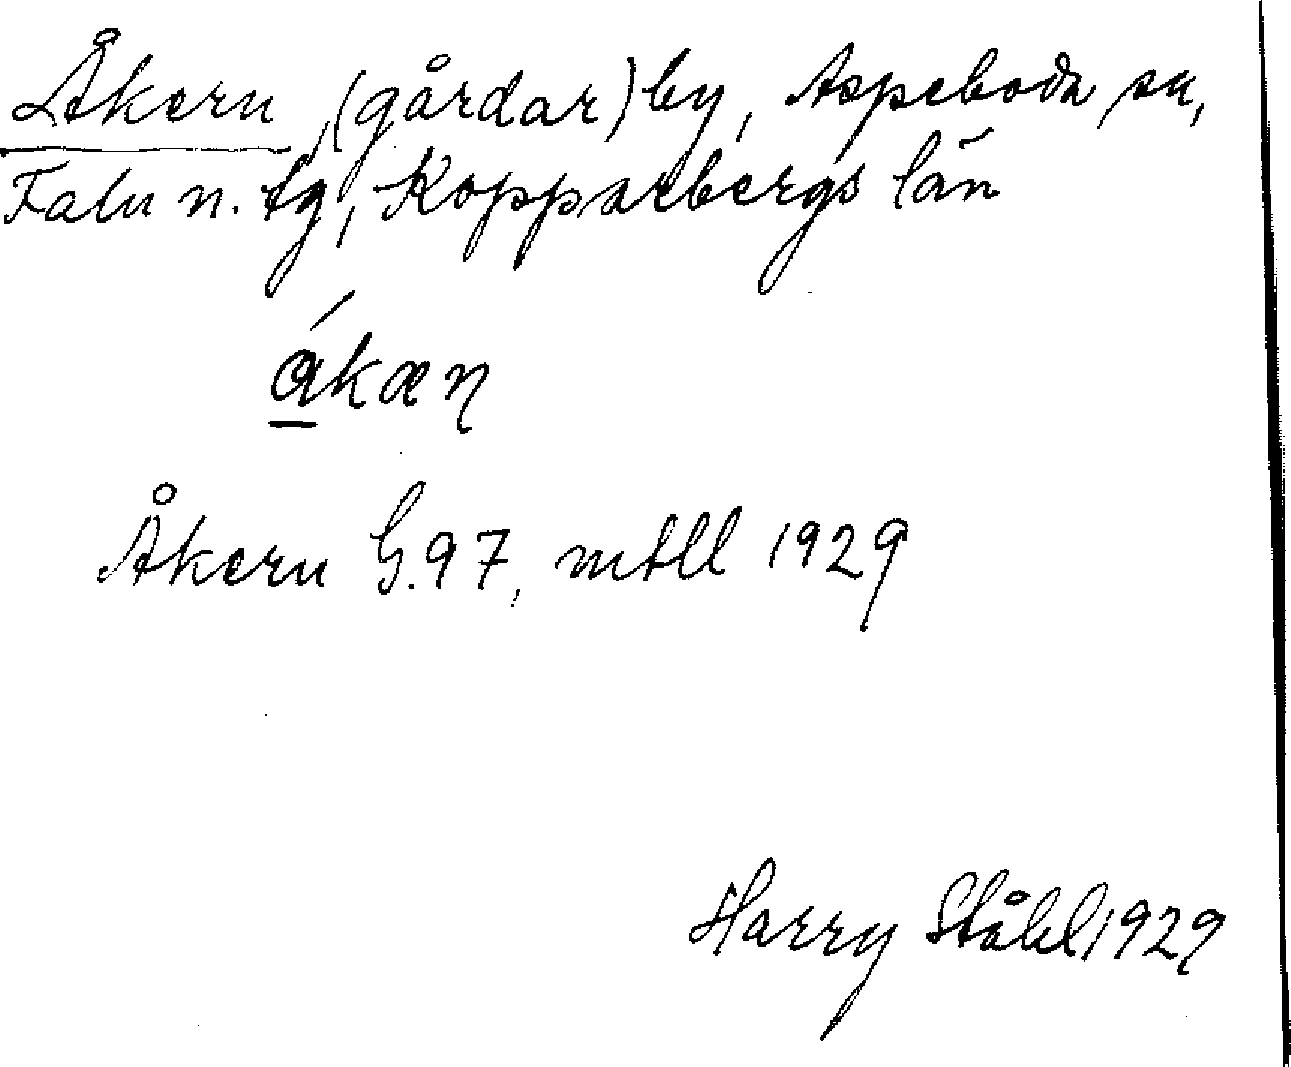 Åkern, (gårdar) by, Aspeboda sn,
Falu n. tg, Kopparbergs län
ákæn
Åkern G.97, mtll 1929
Harry Ståhl 1929